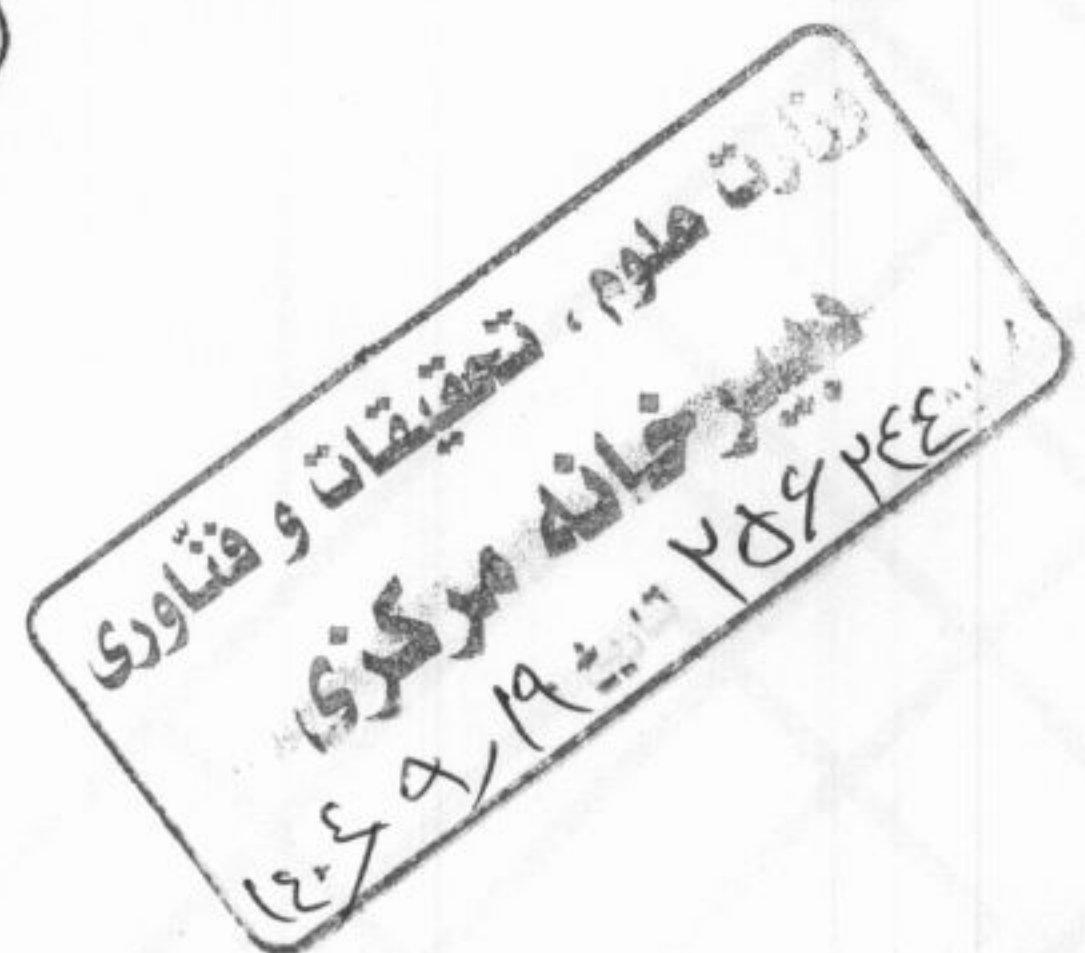 وزارت علوم، تحقیقات و فنّاوری
دبیرخانه مرکزی
۲۵۶۲۴۴ تاریخ ۱۴۰۴/۵/۱۹